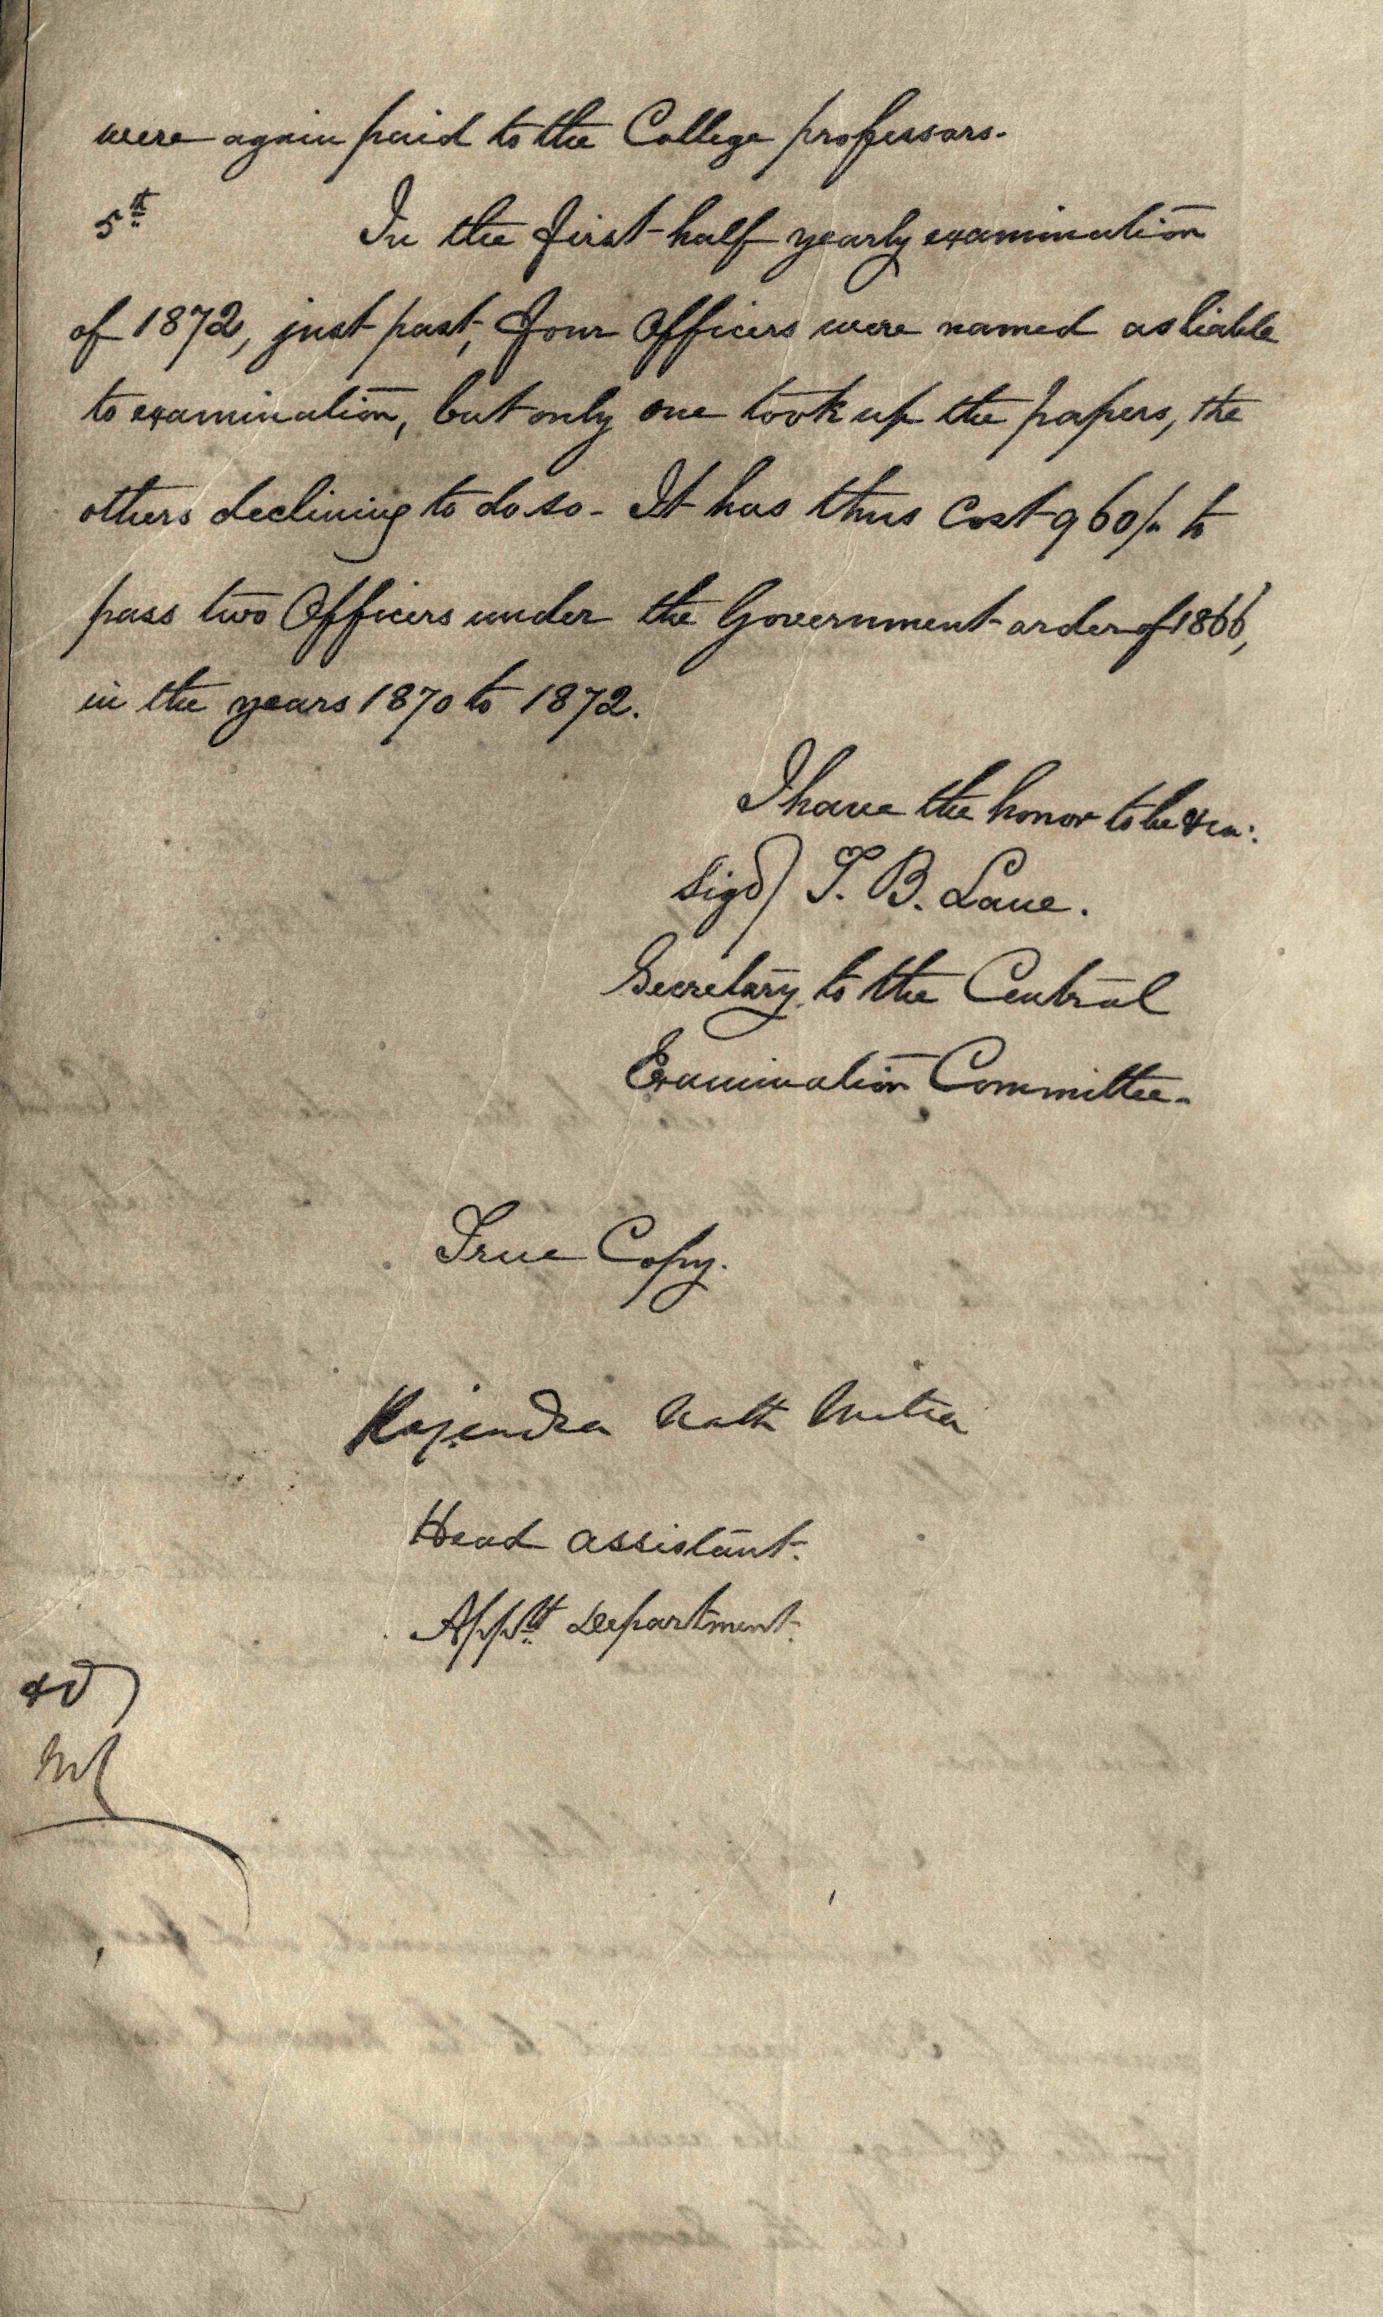 were again paid to the College professors.
5th In the first half yearly examination
of 1872, just past, four Officers were named as liable
to examination, but only one took up the papers, the
others declining to do so - It has thus cost 960/- to
pass two Officers under the Government order of 1866,
in the years 1870 to 1872.
I have the honor to be &ca:
Sigd) T. B. Lane.
Secretary to the Central
Examination Committee.
True Copy.
Rajendra Nath Mitra
Head assistant.
Appтt Department.